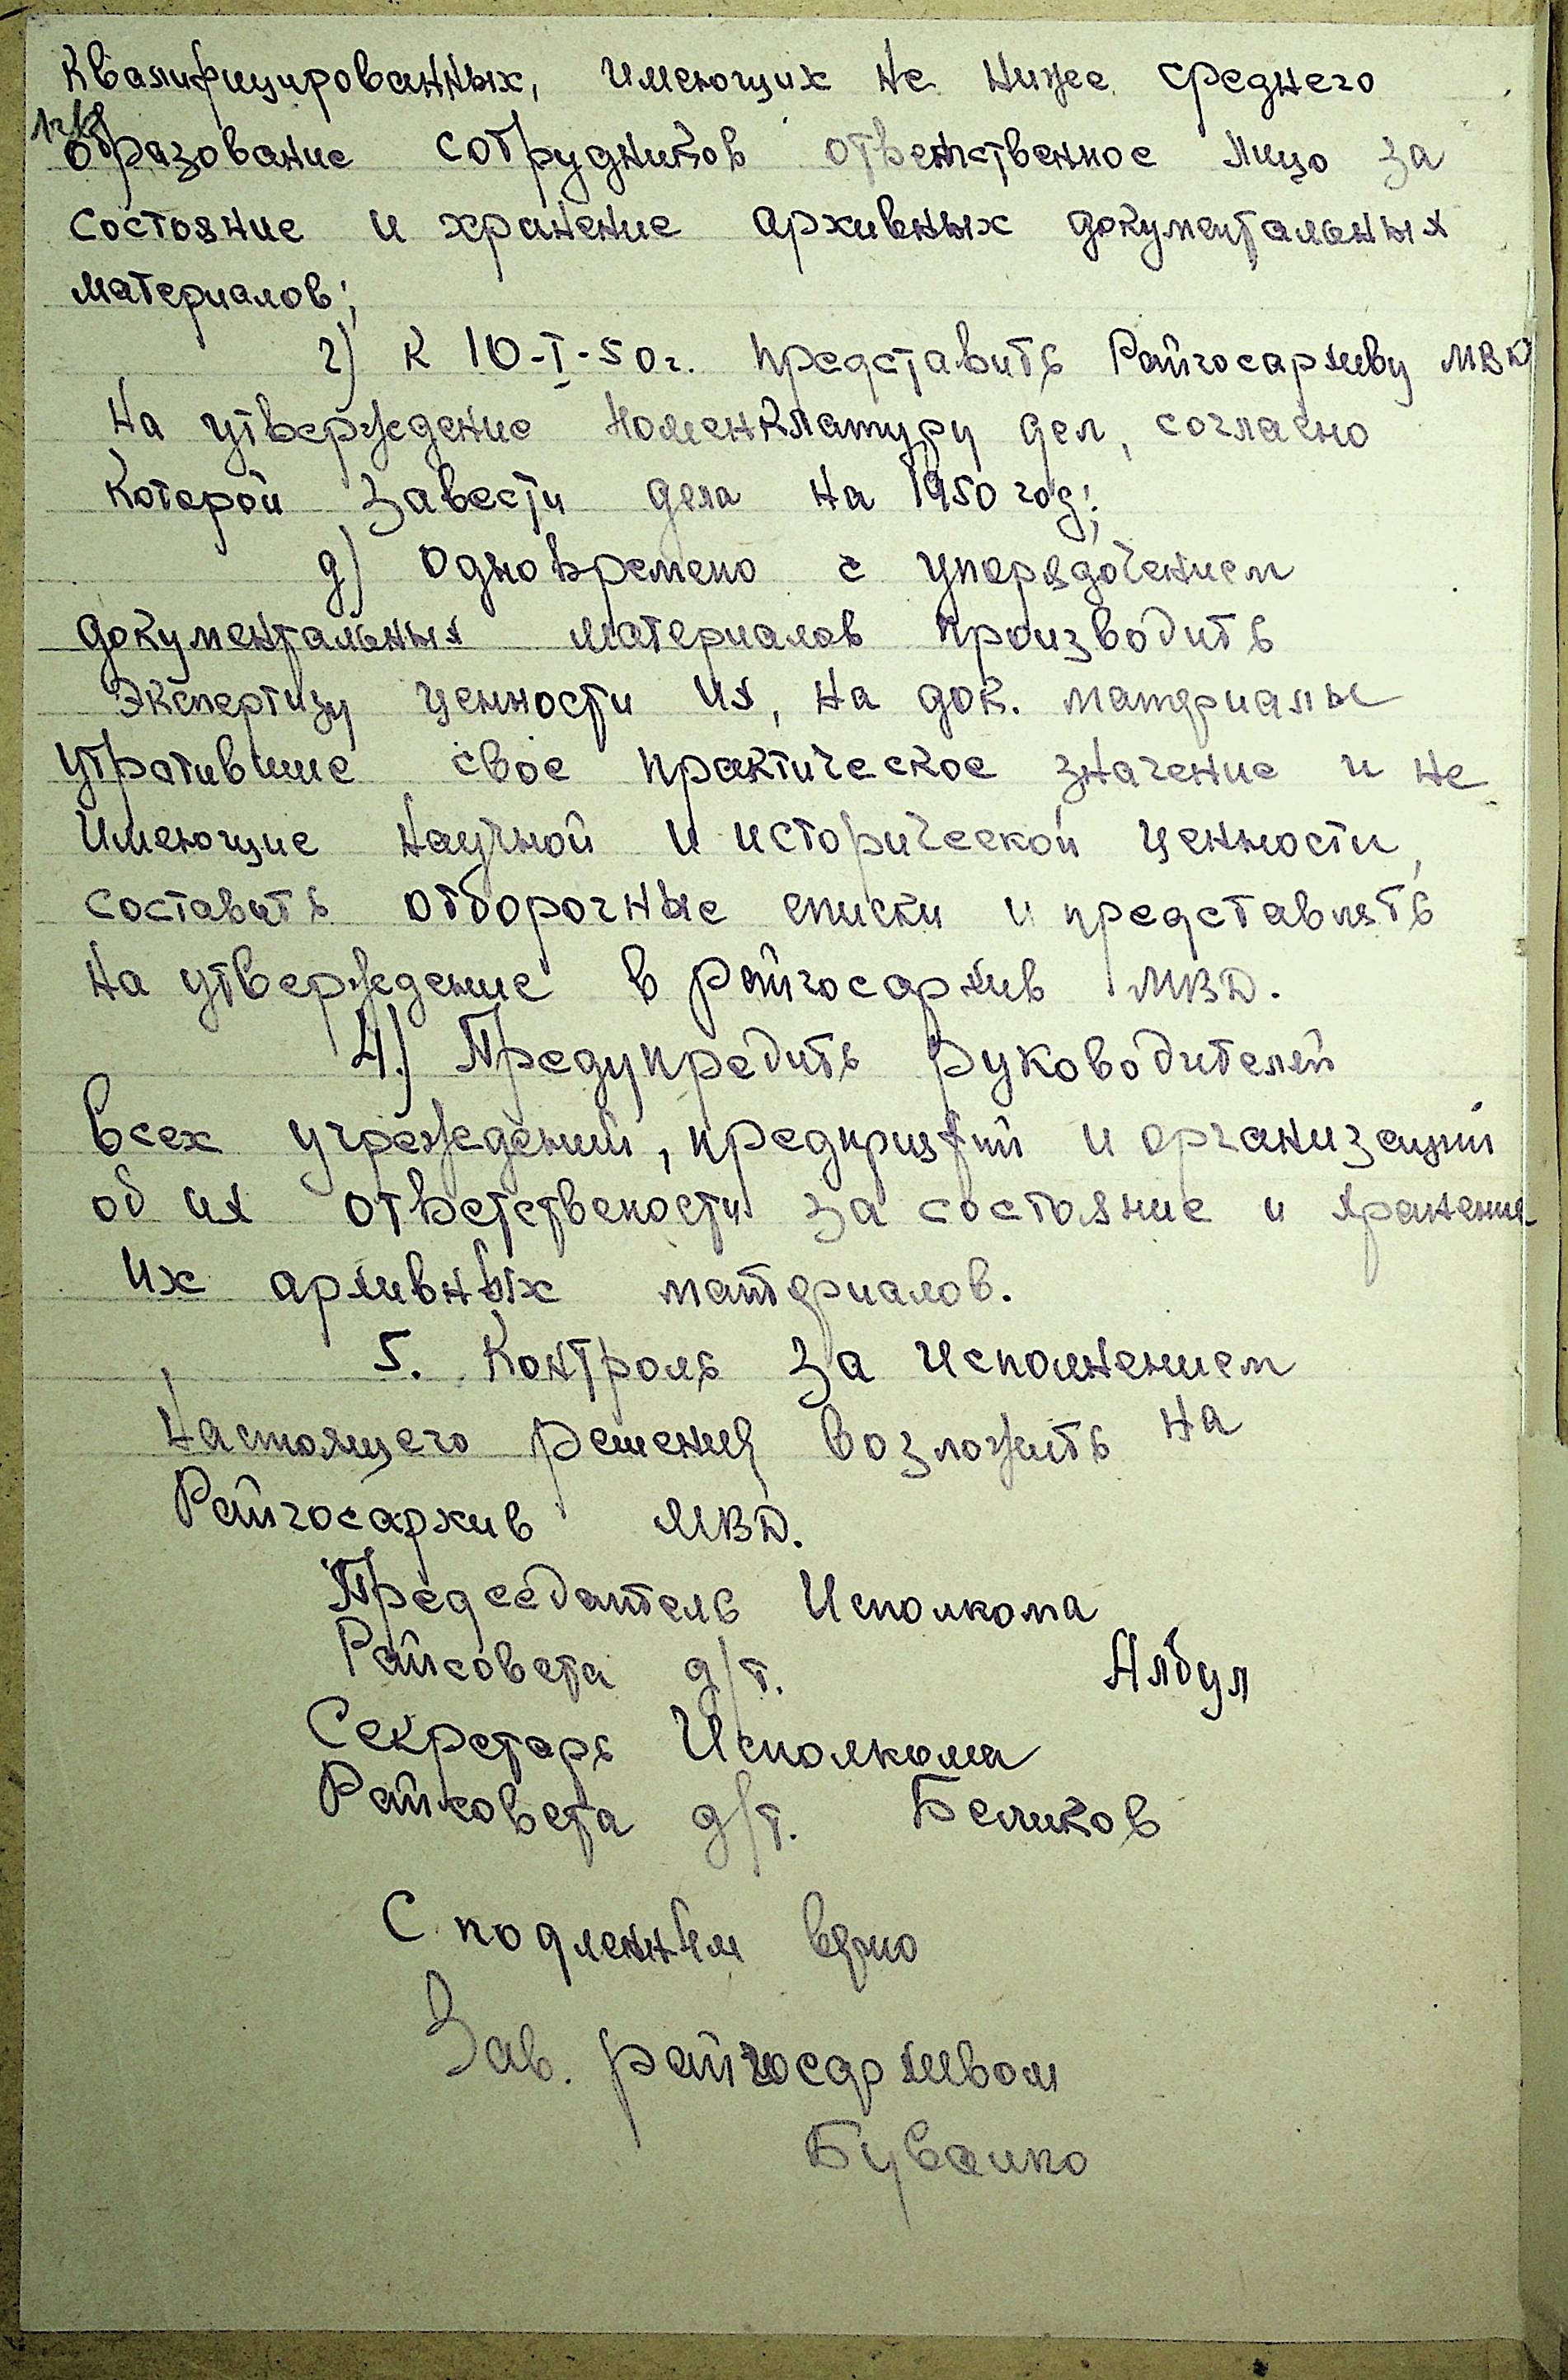 Квалифицированных, имеющих не ниже среднего
образование сотрудников ответственное лицо за
состояние и хранение архивных документальных
материалов;
г) К 10-I-50г. представить Райгосархиву МВД
на утверждение номенклатуру дел, согласно
которой завести дела на 1950 год;
д) Одновремено с упорядочением
документальных материалов производить
экспертизу ценности их, на док. материалы
утратившие свое практическое значение и не
имеющие научной и исторической ценности,
составить отборочные списки и представлять
на утверждение в райгосархив МВД.
4.) Предупредить руководителей
всех учреждений, предприятий и организаций
об их ответствености за состояние и хранение
их архивных материалов.
5. Контроль за исполнением
настоящего решения возложить на
Райгосархив МВД.
Председатель Исполкома
Райсовета д/т. Албул
Секретарь Исполкома
Райсовета д/т. Беликов
С подленным верно
Зав. райгосархивом